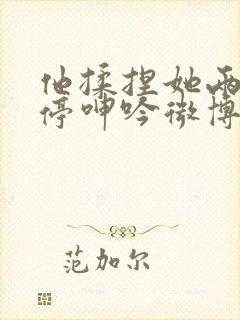 他揉捏她两
停呻吟微博
范加尔